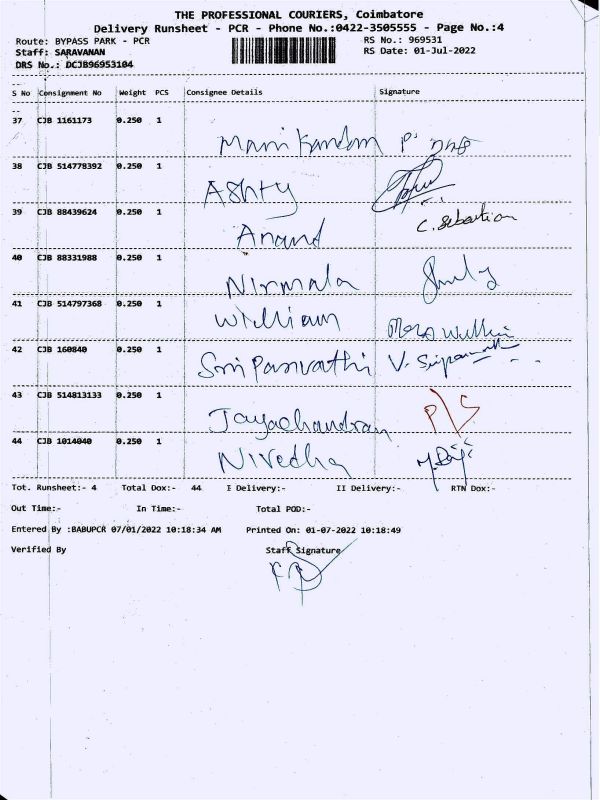 THE PROFESSIONAL COURIERS, Coimbatore
Delivery Runsheet - PCR - Phone No.:0422-3505555 - Page No.:4
Route: BYPASS PARK - PCR RS No.: 969531
Staff: SARAVANAN RS Date: 01-Jul-2022
DRS No.: DCJB96953104
S No Consignment No Weight PCS Consignee Details Signature
37 CJB 1161173 0.250 1
Manikandan P.
38 CJB 514778392 0.250 1
Ashty
39 CJB 88439624 0.250 1
Anand C. Sebastian
40 CJB 88331988 0.250 1
Nirmala
41 CJB 514797368 0.250 1
William
42 CJB 160840 0.250 1
Sri Parvathi V.
43 CJB 514813133 0.250 1
Jayachandran P/S
44 CJB 1014040 0.250 1
Nivedha
Tot. Runsheet:- 4 Total Dox:- 44 I Delivery:- II Delivery:- RTN Dox:-
Out Time:- In Time:- Total POD:-
Entered By :BABUPCR 07/01/2022 10:18:34 AM Printed On: 01-07-2022 10:18:49
Verified By Staff Signature